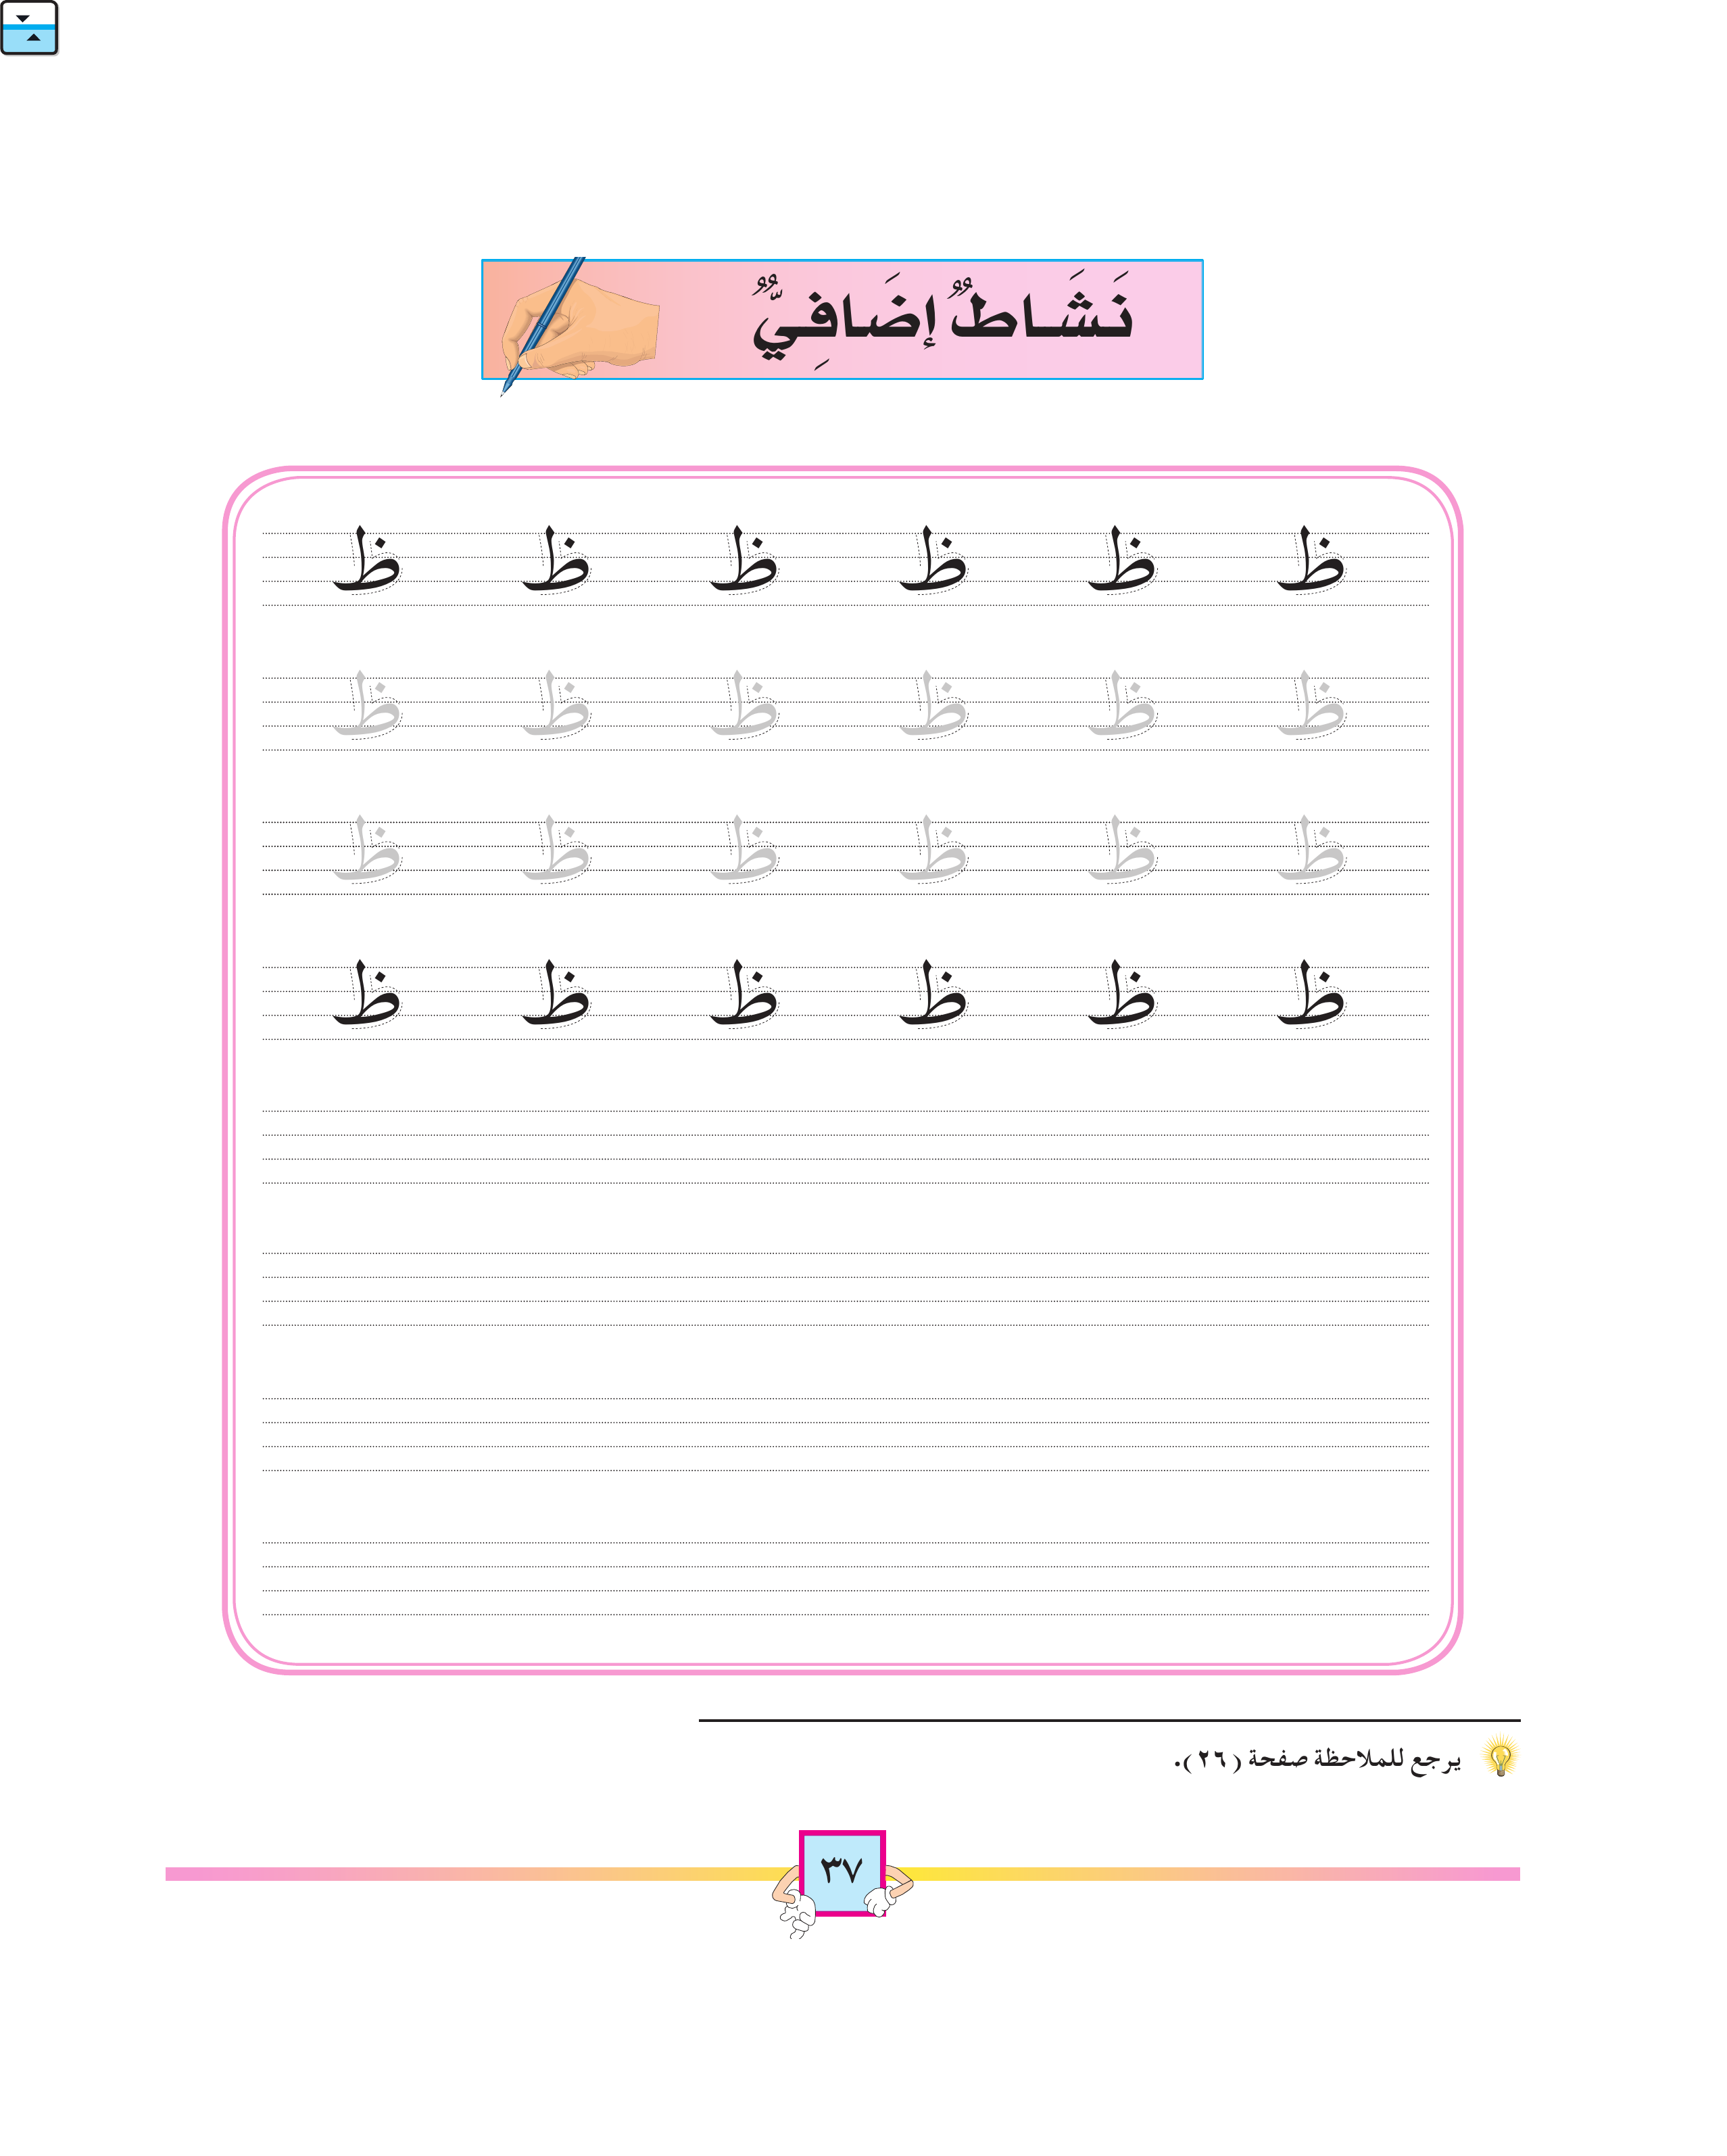 نَشَاطٌ إضَافِيٌّ
ظ ظ ظ ظ ظ ظ
ظ ظ ظ ظ ظ ظ
ظ ظ ظ ظ ظ ظ
ظ ظ ظ ظ ظ ظ
يرجع للملاحظة صفحة (٢٦).
٣٧